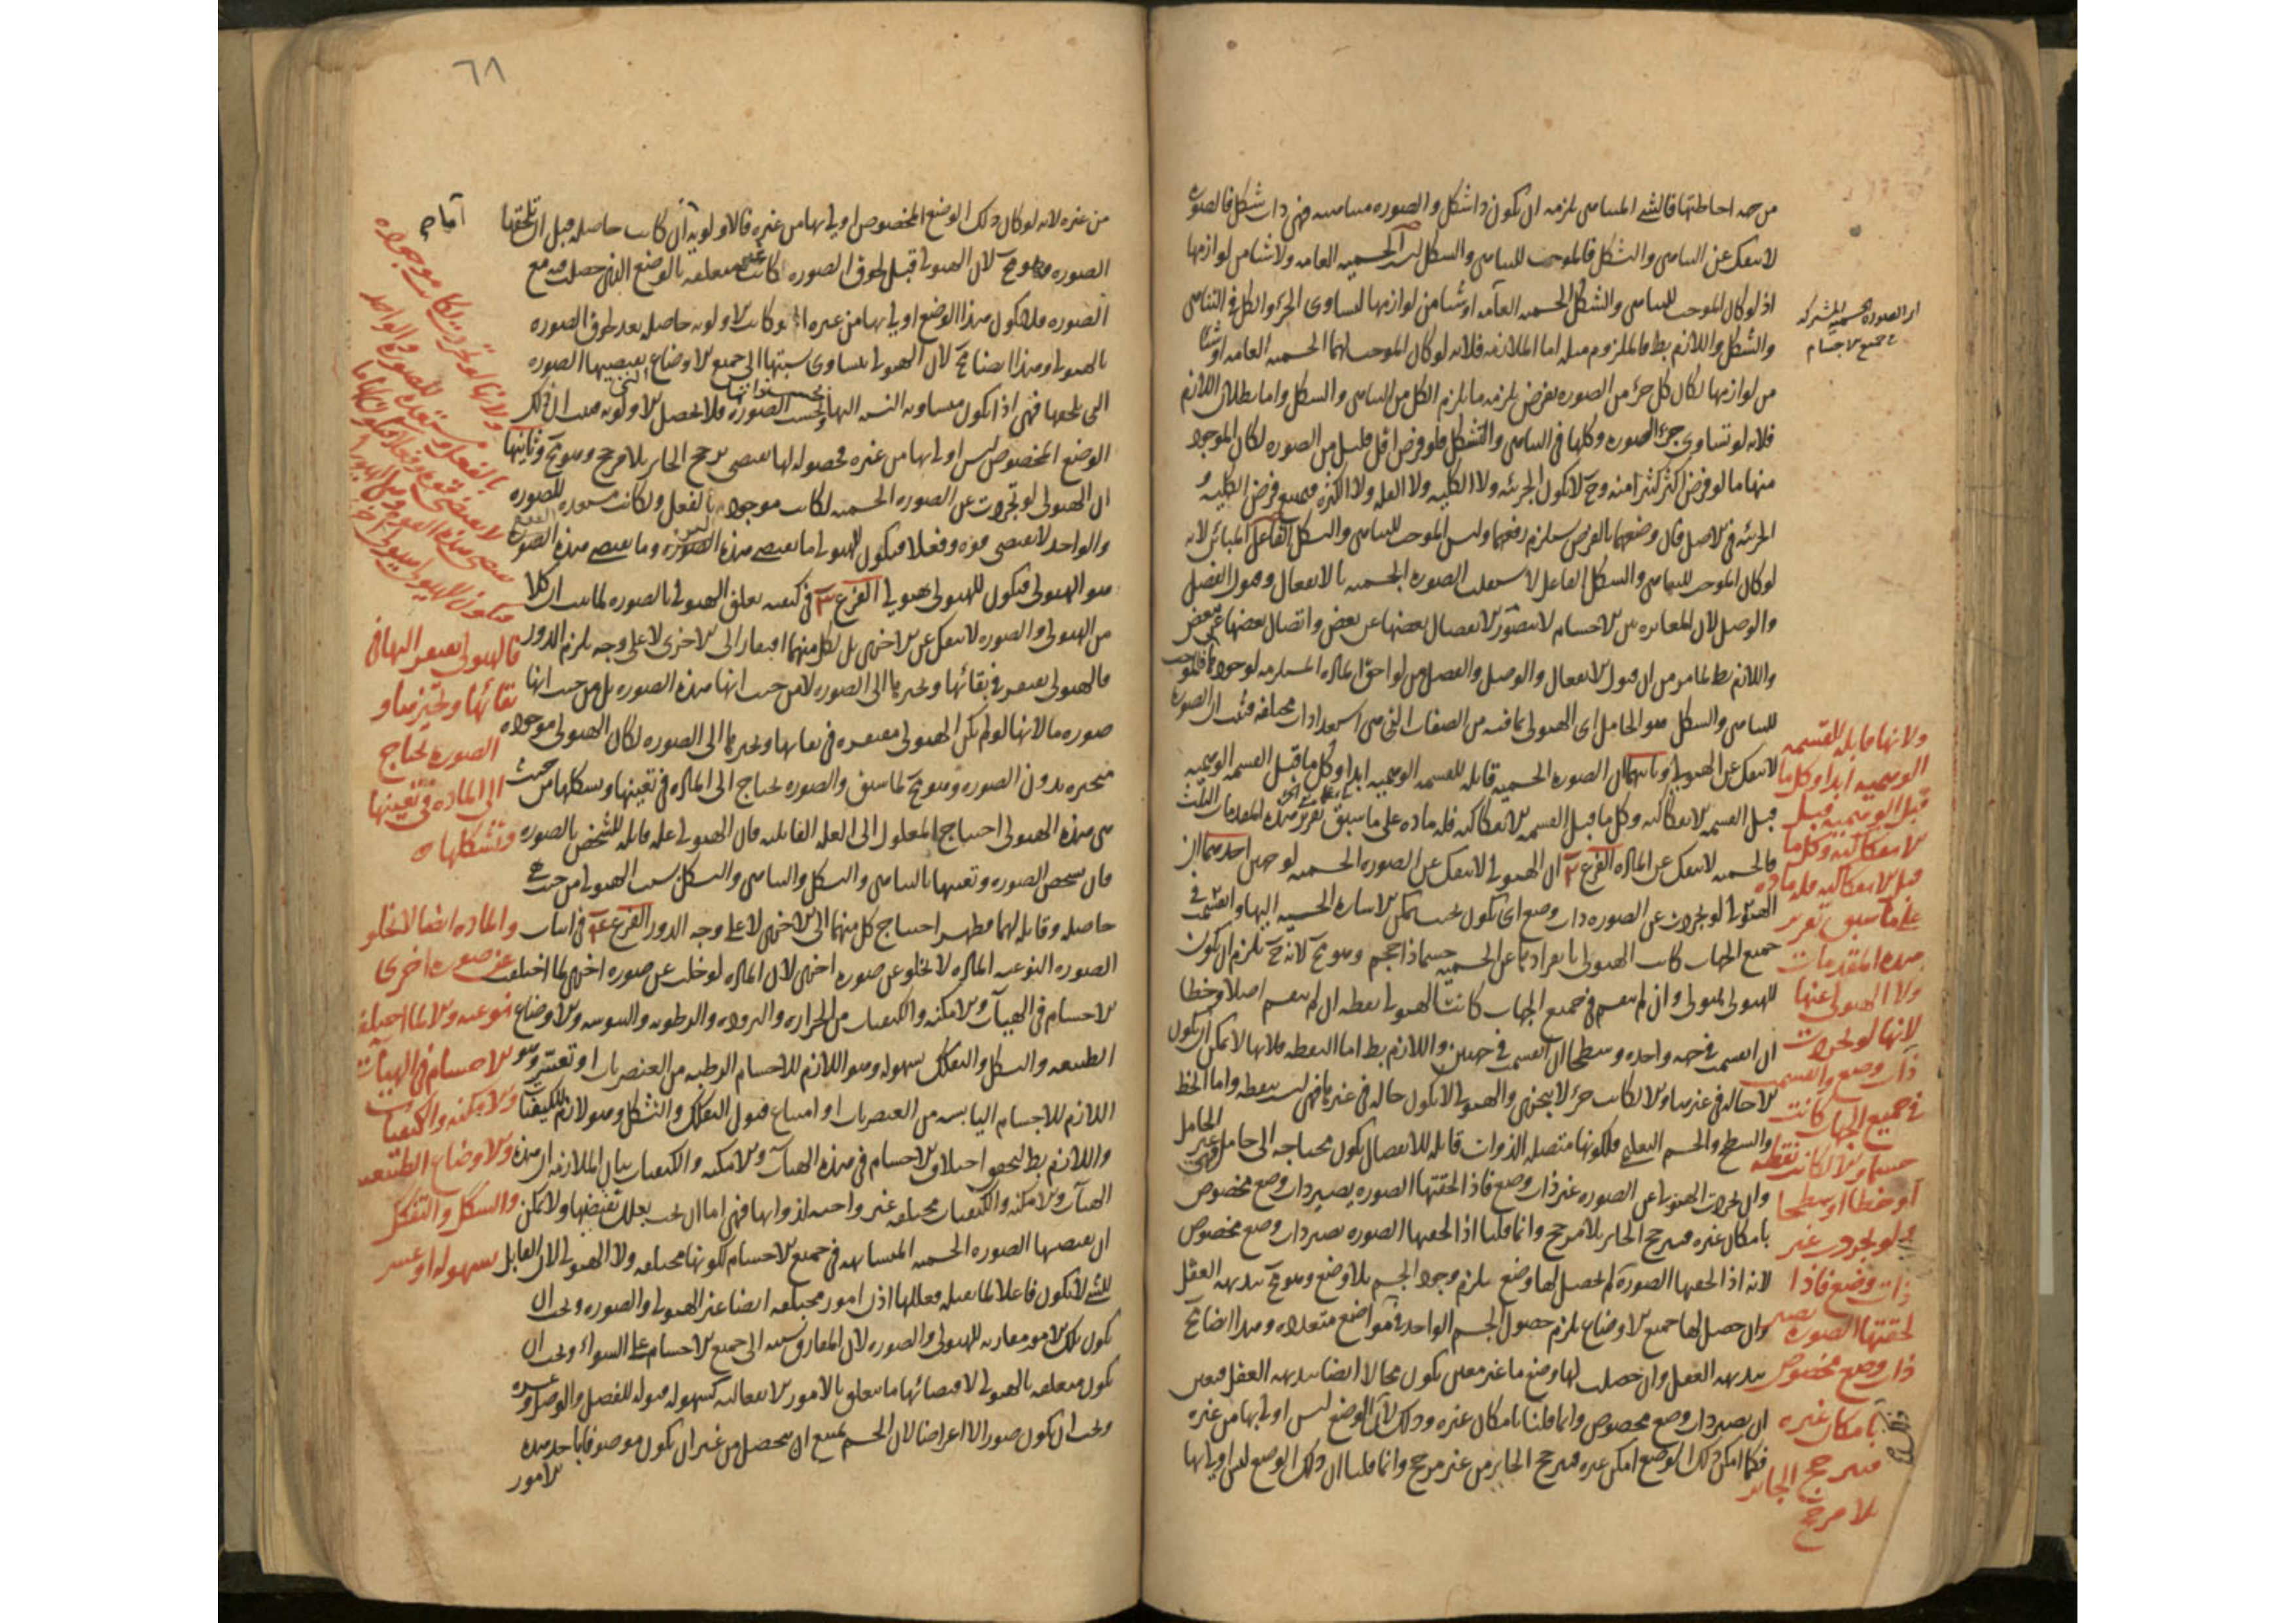 من جهة احاطتها فالشى المتناهى يلزمه ان يكون ذا شكل والصوره متناهيه فهى ذات شكل فالصوره
لا تنفك عن التناهى والتشكل فالموجب للتناهى والشكل ليس الجسميه العامه ولا شيئا من لوازمها
اذ لو كان الموجب للتناهى والشكل الجسميه العامه او شيئا من لوازمها لتساوى الجزء والكل فى التناهى
والشكل واللازم بط فالملزوم مثله اما الملازمه فلانه لو كان الموجب لهما الجسميه العامه او شيئا
من لوازمها لكان كل جزء من الصوره يفرض يلزمه ما يلزم الكل من التناهى والشكل واما بطلان اللازم
فلانه لو تساوى جزء الصوره وكلها فى التناهى والتشكل فلو فرض اقل قليل من الصوره لكان الموجود
منها ما لو فرض اكثر كثير منه وح لا تكون الجزئيه ولا الكليه ولا القله ولا الكثره فيمتنع فرض الكليه و
الجزئيه فى الاصل فان وضعهما بالفرض يستلزم رفعهما وليس الموجب للتناهى والشكل الفاعل المباين لانه
لو كان الموجب للتناهى والشكل الفاعل لاستقلت الصوره الجسميه بالانفعال وقبول الفصل
والوصل لان المغايره بين الاجسام لا يتصور الا بانفصال بعضها عن بعض واتصال بعضها ببعض
واللازم بط لما مر من ان قبول الانفعال والوصل والفصل من لواحق الماده المستلزمه لوجودها فالموجب
للتناهى والشكل هو الحامل اى الهيولى بما فيه من الصفات التى هى استعدادات مختلفه فثبت ان الصوره
لا تنفك عن الهيولى الصوره الجسميه قابله للقسمه الوهميه ابدا وكل ما قبل القسمه الوهميه
قبل القسمه الانفكاكيه وكل ما قبل القسمه الانفكاكيه فله ماده على ما سبق تقرير هذه المقدمات الثلث
فالجسميه لا تنفك عن الماده الفرع ٢ ان الهيولى لا تنفك عن الصوره الجسميه لوجهين احدهما ان
الهيولى لو تجردت عن الصوره ذات وضع اى تكون بحيث يمكن الاشاره الحسيه اليها وانقسمت فى
جميع الجهات كانت الهيولى بانفرادها عن الجسميه جسما ذا حجم وهو مح لانه ح يلزم ان يكون
للهيولى هيولى وان لم ينقسم فى جميع الجهات كانت الهيولى نقطه ان لم ينقسم اصلا وخطا
ان انقسمت فى جهه واحده وسطحا ان انقسمت فى جهتين واللازم بط اما النقطه فلانها لا يمكن ان تكون
الا حاله فى غيرها والا لكانت جزءا لا يتجزى والهيولى لا تكون حاله فى غيرها فهى ليست بنقطه واما الخط
والسطح والجسم التعليمى فلكونها متصله الذوات قابله للانفصال تكون محتاجه الى حامل فهى غير الحامل
وان تجردت الهيولى عن الصوره غير ذات وضع فاذا لحقتها الصوره يصير ذات وضع مخصوص
بامكان غيره فيترجح الجائز بلا مرجح وانما قلنا اذا لحقها الصوره تصير ذات وضع مخصوص
لانه اذا لحقها الصوره لم يحصل لها وضع يلزم وجود الجسم بلا وضع وهو مح ببديهه العقل
وان حصل لها جميع الاوضاع يلزم حصول الجسم الواحد فى مواضع متعدده وهذا ايضا مح
ببديهه العقل وان حصلت لها وضع ما غير معين يكون محالا ايضا ببديهه العقل فتعين
ان يصير ذات وضع مخصوص وانما قلنا بامكان غيره وذلك لان الوضع ليس اولى بها من غيره
فكما امكن ذلك الوضع امكن غيره فيترجح الجائز من غير مرجح وانما قلنا ان ذلك الوضع ليس اولى بها
اى الصوره الجسميه المشتركه
فى جميع الاجسام
ولانها قابله للقسمه
الوهميه ابدا وكل ما
قبل الوهميه قبل
الانفكاكيه وكل ما
قبل الانفكاكيه فله ماده
على ما سبق تقرير
هذه المقدمات
ولا الهيولى عنها
لانها لو تجردت
ذات وضع وانقسمت
فى جميع الجهات كانت
جسما والا لكانت نقطه
او خطا او سطحا
ولو تجردت غير
ذات وضع فاذا
لحقتها الصوره يصير
ذات وضع مخصوص
بامكان غيره
فيترجح الجائز
بلا مرجح
٦٨
من غيره لانه لو كان ذلك الوضع المخصوص اولى بها من غيره فالاولويه ان كانت حاصله قبل ان تلحقها
الصوره وهو مح لان الهيولى قبل لحوق الصوره كانت غير متعلقه بالوضع الذى حصل فيه مع
الصوره فلا يكون هذا الوضع اولى بها من غيره او كانت الاولويه حاصله بعد لحوق الصوره
بالهيولى وهذا ايضا مح لان الهيولى يتساوى نسبتها الى جميع الاوضاع التى يقتضيها الصوره
التى تلحقها فهى اذا تكون متساويه النسب اليها بحسب الصوره فلا يحصل الاولويه فثبت ان ذلك
الوضع المخصوص ليس اولى بها من غيره فحصوله لها يقتضى ترجح الجائز بلا مرجح وهو مح وثانيها
ان الهيولى لو تجردت عن الصوره الجسميه لكانت موجوده بالفعل ولكانت مستعده للصوره
والواحد لا يقتضى قوه وفعلا فيكون للهيولى ما يقتضى هذه الصوره وما يقتضى هذه الصوره
هو الهيولى فيكون للهيولى هيولى الفرع ٣ فى كيفيه تعلق الهيولى بالصوره لما ثبت ان كلا
من الهيولى والصوره لا تنفك عن الاخرى بل لكل منهما افتقار الى الاخرى لا على وجه يلزم الدور
فالهيولى يفتقر فى بقائها وتحيزها الى الصوره لا من حيث انها هذه الصوره بل من حيث انها
صوره ما لانها لو لم تكن الهيولى مفتقره فى بقائها وتحيزها الى الصوره لكان الهيولى موجوده
متحيزه بدون الصوره وهو مح لما سبق والصوره تحتاج الى الماده فى تعينها وتشكلها من حيث
هى هذه الهيولى احتياج المعلول الى العله القابليه فان الهيولى عله قابله للشخص بالصوره
فان تشخص الصوره وتعينها بالتناهى والشكل والتناهى والشكل بسبب الهيولى من حيث هى
حاصله وقابله لهما فظهر احتياج كل منهما الى الاخرى لا على وجه الدور الفرع ٤ فى اثبات
الصوره النوعيه الماده لا تخلو عن صوره اخرى لان الماده لو خلت عن صوره اخرى لما اختلف
الاجسام فى الهيآت والامكنه والكيفيات من الحراره والبروده والرطوبه واليبوسه والاوضاع
الطبيعيه والشكل والتفكك بسهوله وهو اللازم للاجسام الرطبه من العنصريات او تعسر وهو
اللازم للاجسام اليابسه من العنصريات او امتناع قبول التفكك والتشكل وهو لازم للفلكيات
واللازم بط لتحقق اختلاف الاجسام فى هذه الهيآت والامكنه والكيفيات بيان الملازمه ان هذه
الهيآت والامكنه والكيفيات مختلفه غير واجبه لذواتها فهى اما ان تجب بعلل تقتضيها ولا يمكن
ان يقتضيها الصوره الجسميه المتشابهه فى جميع الاجسام لكونها مختلفه ولا الهيولى لان القابل
للشى لا يكون فاعلا لما يقبله فعللها اذن امور مختلفه ايضا غير الهيولى والصوره ويجب ان
تكون تلك الامور مقارنه للهيولى والصوره لان المفارق نسبته الى جميع الاجسام على السواء ويجب ان
تكون متعلقه بالهيولى لاقتضائها ما يتعلق بالامور الانفعاليه كسهوله قبوله للفصل والوصل وعسره
ويجب ان يكون صورا لا اعراضا لان الجسم يمتنع ان يتحصل من غير ان يكون موصوفا باحد هذه
الامور
ولانها لو تجردت لكانت موجوده
بالفعل مستعده للصوره والواحد
لا يقتضى قوه وفعلا فيكون لها ما
فيكون للهيولى هيولى اخرى
فالهيولى يفتقر اليها فى
بقائها وتحيزها و
الصوره تحتاج
الى الماده فى تعينها
وتشكلها
والماده ايضا لا تخلو
عن صوره اخرى
نوعيه والا لما اختلف
الاجسام فى الهيآت
والامكنه والكيفيات
والاوضاع الطبيعيه
والشكل والتفكك
بسهوله او عسر